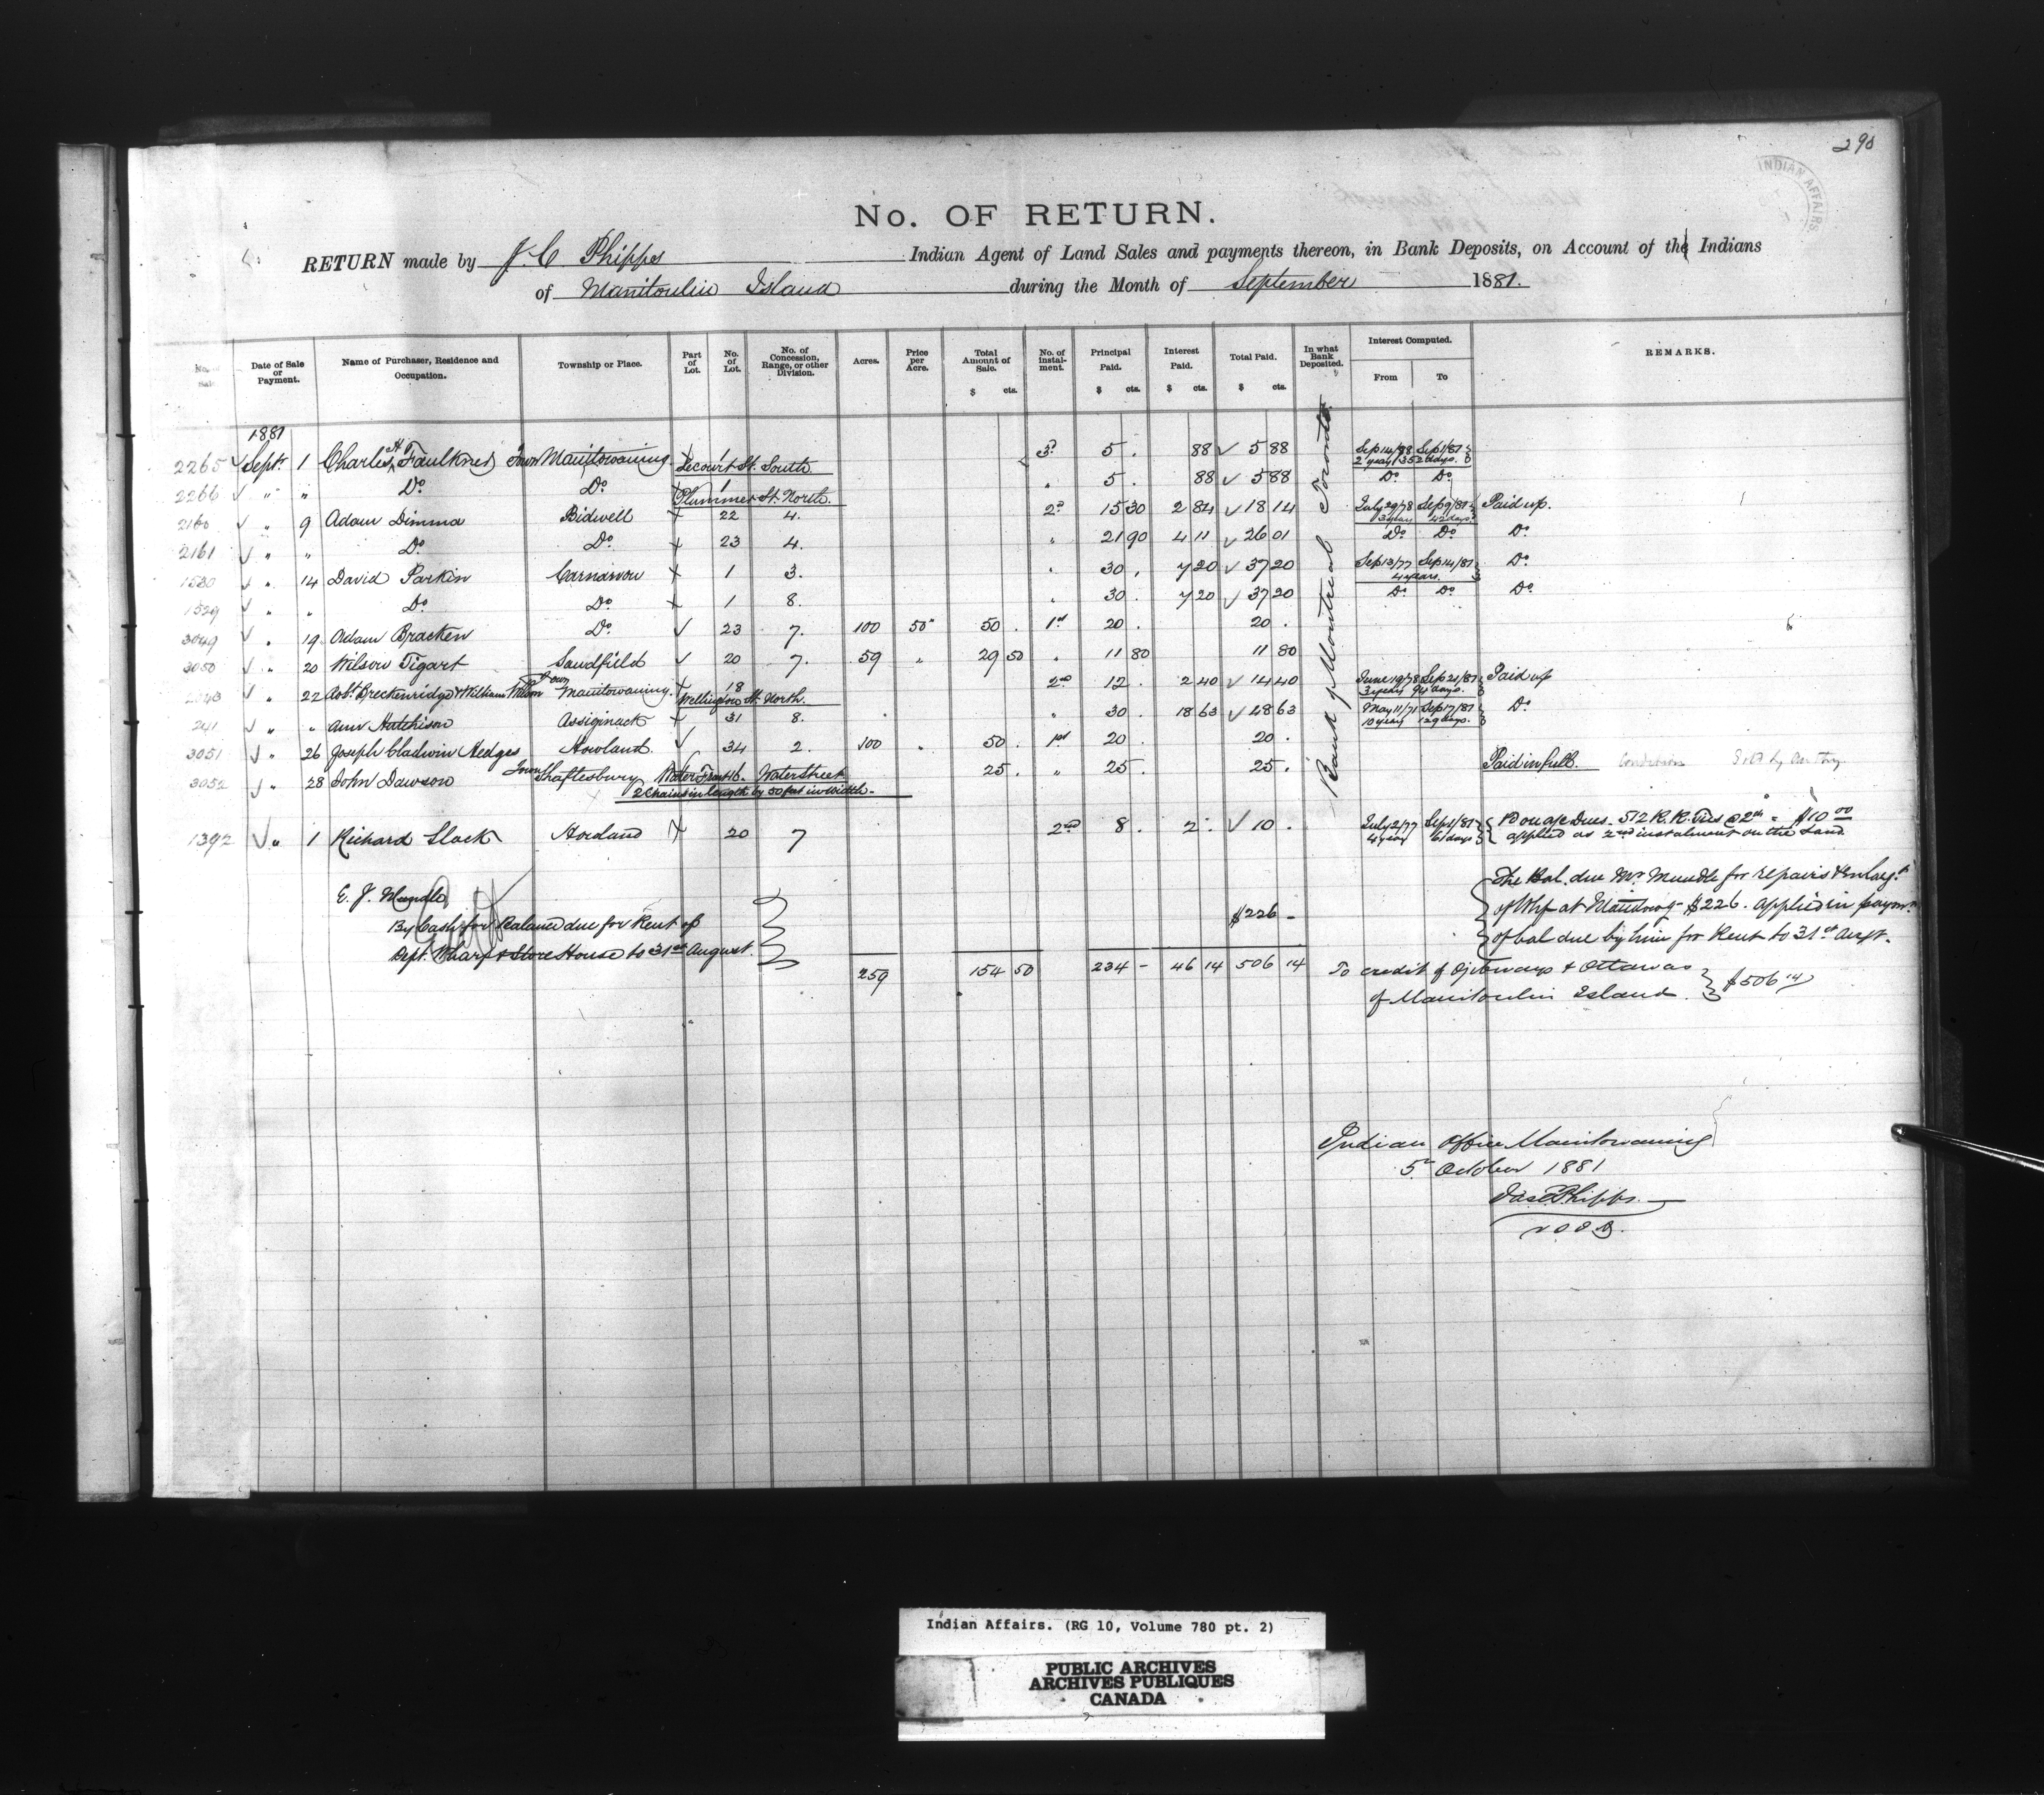 290
INDIAN AFFAIRS
No. OF RETURN.
RETURN made by J. C Phipps Indian Agent of Land Sales and payments thereon, in Bank Deposits, on Account of the Indians
of Manitoulin Island during the Month of September 1881.
No. of Sale. Date of Sale or Payment. Name of Purchaser, Residence and Occupation. Township or Place. Part of Lot. No. of Lot. No. of Concession, Range, or other Division. Acres. Price per Acre. Total Amount of Sale. $ cts. No. of instal-ment. Principal Paid. $ cts. Interest Paid. $ cts. Total Paid. $ cts. In what Bank Deposited. Interest Computed. From To REMARKS.
Bank of Montreal Toronto
1881
2265 ✓ Sept. 1 Charles H Faulkner Town Manitowaning 1 3d 5 . 88 ✓ 5 88 Sep 14/78 Sep 1/81
Lecourt St. South 2 years 352 days.
2266 ✓ " " Do Do 1 " 5 . 88 ✓ 5 88 Do Do
Plummer St. North.
2160 ✓ " 9 Adam Dimma Bidwell 22 4. 2d 15 30 2 84 ✓ 18 14 July 29/78 Sep 9/81 Paid up.
3 years 42 days.
2161 ✓ " " Do Do 23 4. " 21 90 4 11 ✓ 26 01 Do Do Do
1530 ✓ " 14 David Parkin Carnarvon 1 3. " 30 . 7 20 ✓ 37 20 Sep 13/77 Sep 14/81 Do
4 years.
1529 ✓ " " Do Do 1 8. " 30 . 7 20 ✓ 37 20 Do Do Do
3049 ✓ " 19 Adam Bracken Do ✓ 23 7. 100 50 50 . 1st 20 . 20 .
3050 ✓ " 20 Wilson Tigart Sandfield ✓ 20 7. 59 " 29 50 " 11 80 11 80
✓ " 22 Robt. Breckenridge & William Wilson Town Manitowaning 18 2nd 12 . 2 40 ✓ 14 40 June 19/78 Sep 21/81 Paid up
Wellington St. North. 3 years 94 days.
241 ✓ " " Ann Hutchison Assiginack 31 8. " 30 . 18 63 ✓ 48 63 May 11/71 Sep 17/81 Do
10 years 129 days.
3051 ✓ " 26 Joseph Gladwin Hedges Howland. ✓ 34 2. 100 " 50 . 1st 20 . 20 .
3052 ✓ " 28 John Dawson Town Shaftesbury Water Front 46. Water Street 25 . " 25 . 25 . Paid in full.
2 Chains in length by 50 feet in width.
1392 ✓ " 1 Richard Slack Howland 20 7 2nd 8 . 2 . ✓ 10 . July 2/77 Sep 1/81 Bonage Dues. 512 R. R. Ties @ 2cts = $10 00
4 years 61 days applied as 2nd instalment on the Land
E. J. Mundle The Bal. due Mr. Mundle for repairs & enlargt.
By Cash for Balance due for Rent of $226 – of Whf at Manitowg. $226. applied in paymt.
Dept. Wharf & Store House to 31st August. of bal due by him for Rent to 31st Augt.
259 154 50 234 – 46 14 506 14 To credit of Ojibways & Ottawas
of Manitoulin Island. $506 14
Indian Office Manitowaning
5th October 1881
Jas C Phipps
V. S. I. A.
Indian Affairs. (RG 10, Volume 780 pt. 2)
PUBLIC ARCHIVES
ARCHIVES PUBLIQUES
CANADA